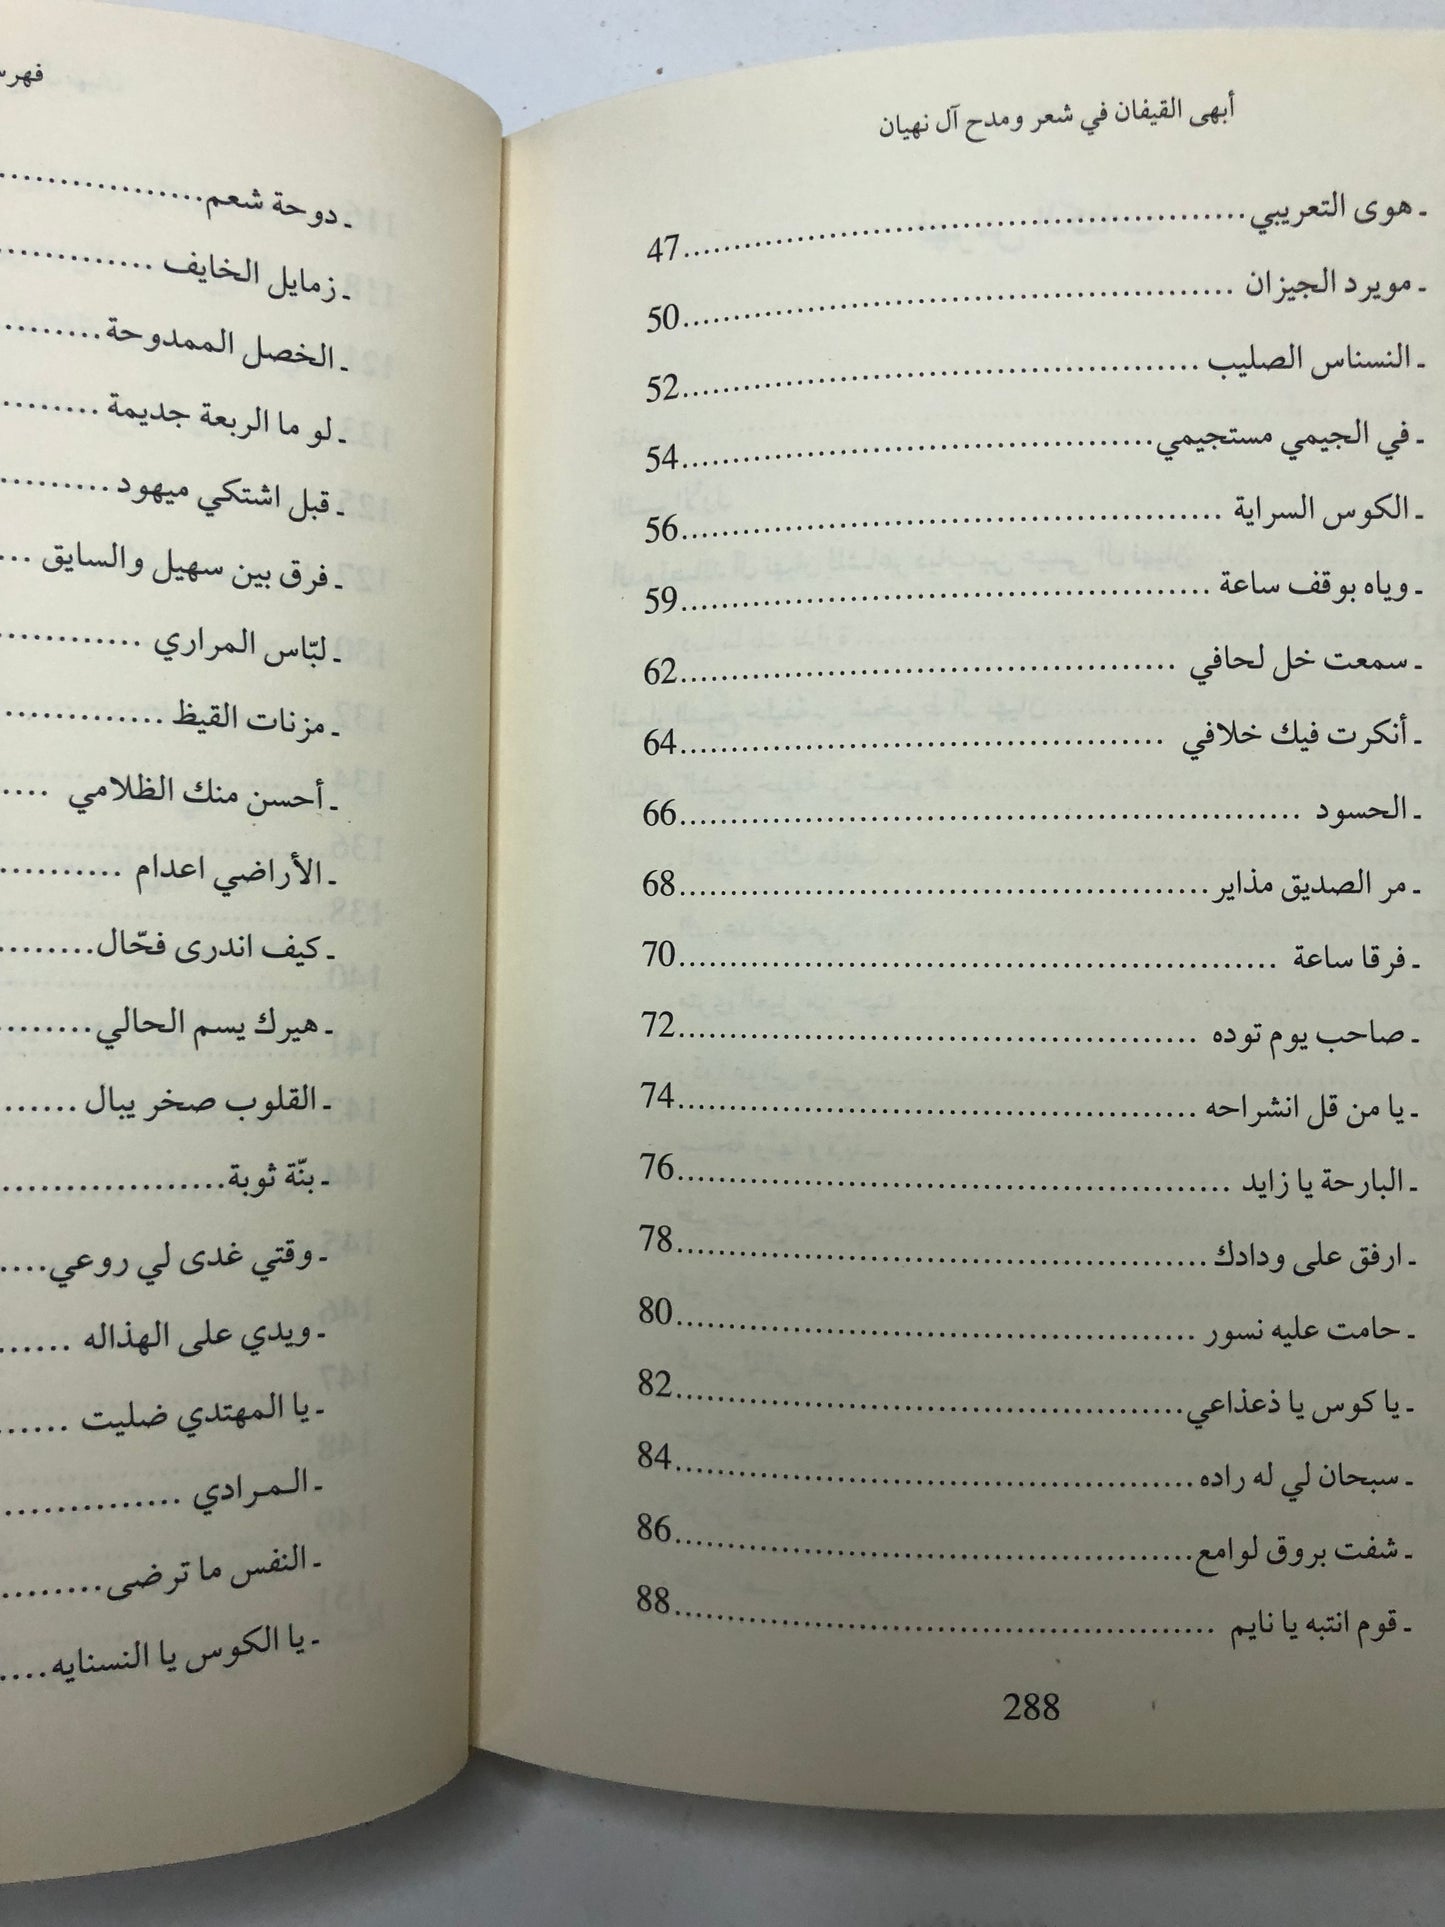 أبهى القيفان في شعر ومدح آل نهيان
ـ هوى التعريبي........................................47
ـ مويرد الجيزان ........................................50
ـ النسناس الصليب ........................................52
ـ في الجيمي مستجيمي........................................54
ـ الكوس السراية ........................................56
ـ وياه بوقف ساعة ........................................59
ـ سمعت خل لحافي ........................................62
ـ أنكرت فيك خلافي ........................................64
ـ الحسود ........................................66
ـ مر الصديق مذاير........................................68
ـ فرقا ساعة ........................................70
ـ صاحب يوم توده ........................................72
ـ يا من قل انشراحه ........................................74
ـ البارحة يا زايد ........................................76
ـ ارفق على ودادك........................................78
ـ حامت عليه نسور ........................................80
ـ يا كوس يا ذعذاعي........................................82
ـ سبحان لي له راده ........................................84
ـ شفت بروق لوامع........................................86
ـ قوم انتبه يا نايم ........................................88
288
ـ دوحة شعم...................
ـ زمايل الخايف ..............
ـ الخصل الممدوحة.........
ـ لو ما الربعة جديمة .........
ـ قبل اشتكي ميهود..........
ـ فرق بين سهيل والسايق ...
ـ لبّاس المراري ............
ـ مزنات القيظ ..............
ـ أحسن منك الظلامي ....
ـ الأراضي اعدام ...........
ـ كيف اندرى فحّال.........
ـ هيرك يسم الحالي.........
ـ القلوب صخر يبال .......
ـ بنّة ثوبة...................
ـ وقتي غدى لي روعي.....
ـ ويدي على الهذاله .......
ـ يا المهتدي ضليت ......
ـ المرادي ...............
ـ النفس ما ترضى.........
ـ يا الكوس يا النسنايه.....